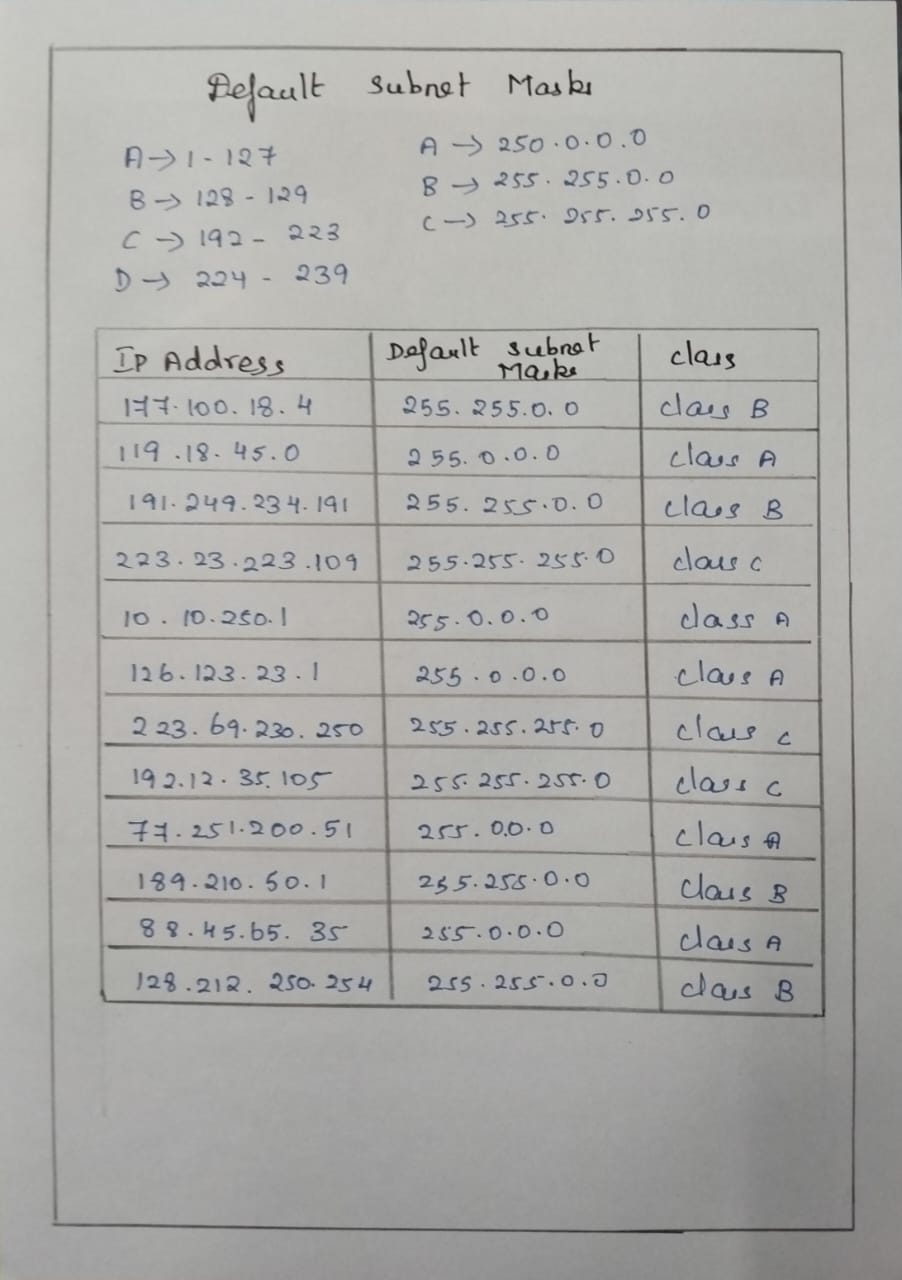 Default Subnet Masks
A → 1 - 127
A → 250.0.0.0
B → 128 - 129
B → 255.255.0.0
C → 192 - 223
C → 255.255.255.0
D → 224 - 239
IP Address Default Subnet Masks class
177.100.18.4 255.255.0.0 class B
119.18.45.0 255.0.0.0 class A
191.249.234.191 255.255.0.0 class B
223.23.223.109 255.255.255.0 class C
10.10.250.1 255.0.0.0 class A
126.123.23.1 255.0.0.0 class A
223.69.230.250 255.255.255.0 class C
192.12.35.105 255.255.255.0 class C
77.251.200.51 255.0.0.0 class A
189.210.50.1 255.255.0.0 class B
88.45.65.35 255.0.0.0 class A
128.212.250.254 255.255.0.0 class B